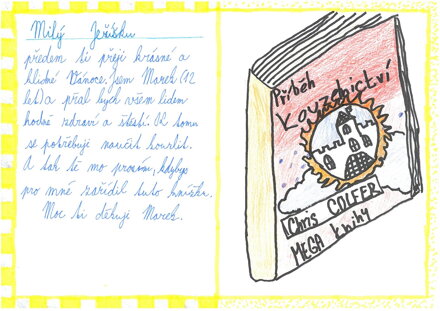 Milý Ježíšku
předem ti přeji krásné a
klidné Vánoce. Jsem Marek (12
let) a přál bych všem lidem
hodně zdraví a štěstí. K tomu
se potřebuje naučit kouzlit.
A tak tě mo prosím, kdybys
pro mně zařídil tuto knížku.
Moc ti děkuji Marek.
Příběh
Kouzelnictví
Chris COLFER
MEGA knihy